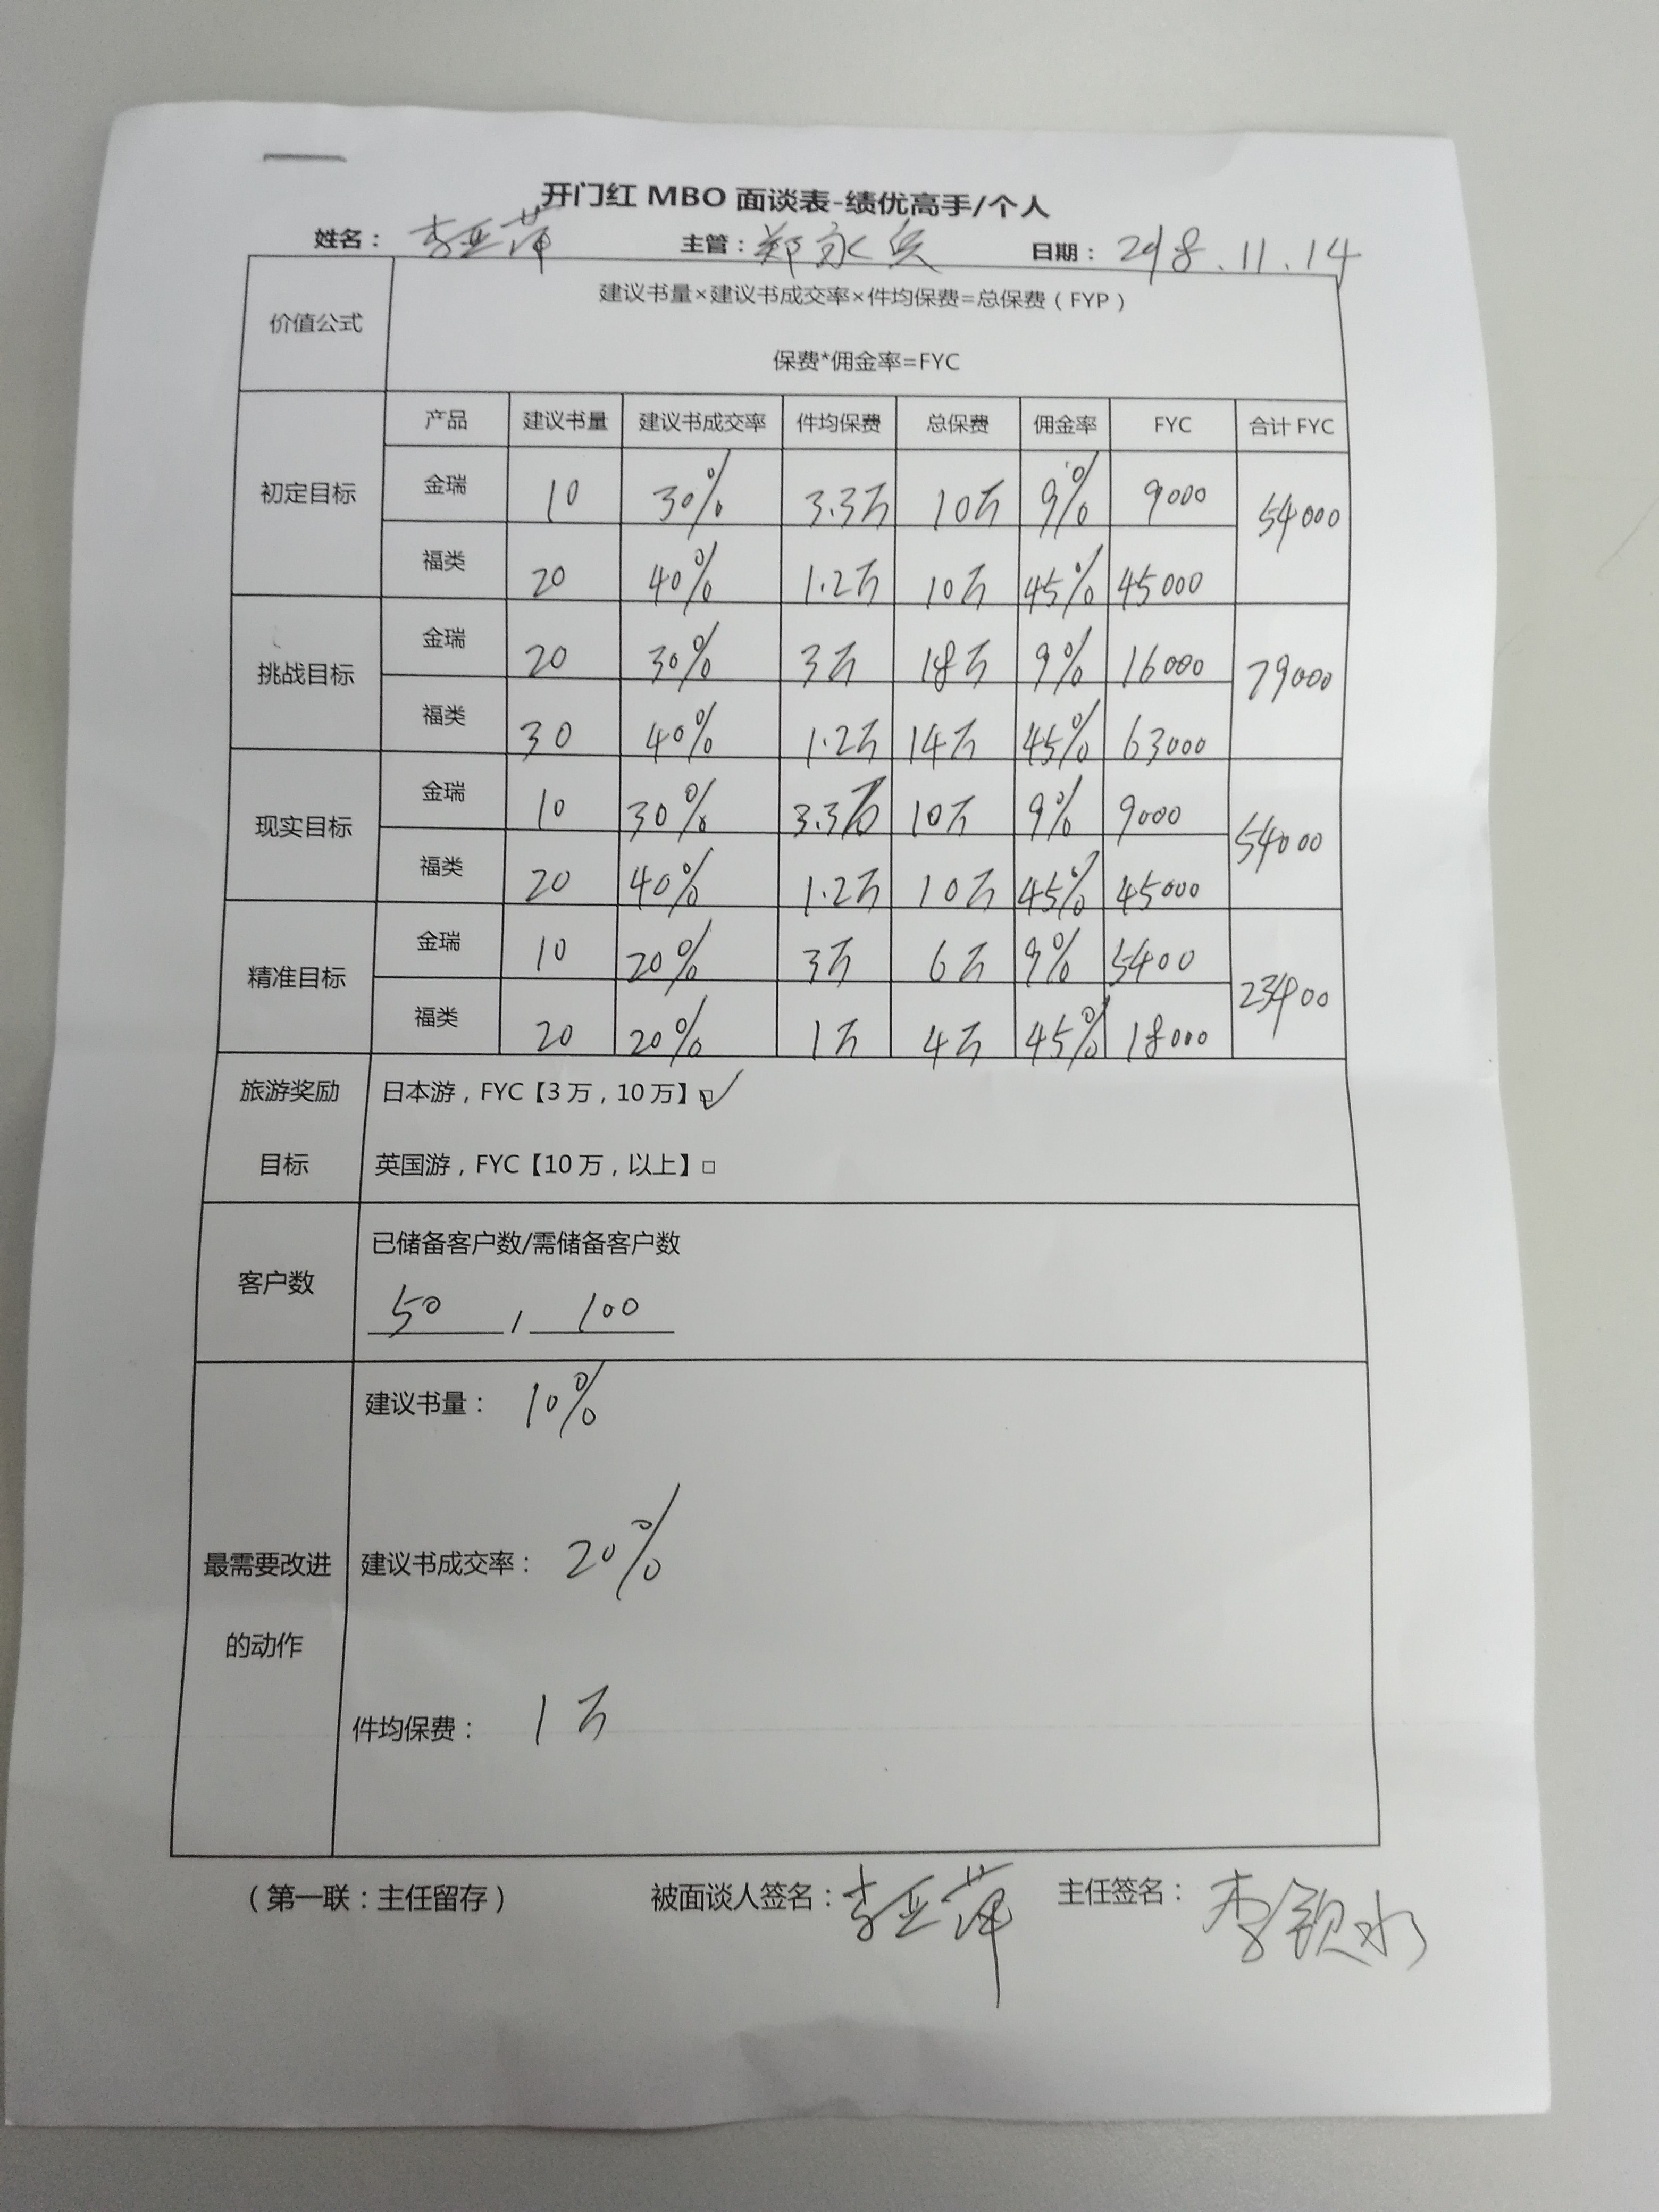 开门红 MBO 面谈表-绩优高手/个人
姓名： 李亚萍 主管：郑永兵 日期： 2018.11.14
价值公式
建议书量×建议书成交率×件均保费=总保费（FYP）
保费*佣金率=FYC
产品 建议书量 建议书成交率 件均保费 总保费 佣金率 FYC 合计 FYC
初定目标
金瑞 10 30% 3.3万 10万 9% 9000 54000
福类 20 40% 1.2万 10万 45% 45000
挑战目标
金瑞 20 30% 3万 18万 9% 16000 79000
福类 30 40% 1.2万 14万 45% 63000
现实目标
金瑞 10 30% 3.3万 10万 9% 9000 54000
福类 20 40% 1.2万 10万 45% 45000
精准目标
金瑞 10 20% 3万 6万 9% 5400 23400
福类 20 20% 1万 4万 45% 18000
旅游奖励 日本游，FYC【3万，10万】□✓
目标 英国游，FYC【10万，以上】□
已储备客户数/需储备客户数
客户数
50 / 100
建议书量： 10%
最需要改进 建议书成交率： 20%
的动作
件均保费： 1万
（第一联：主任留存） 被面谈人签名：李亚萍 主任签名：李钦水